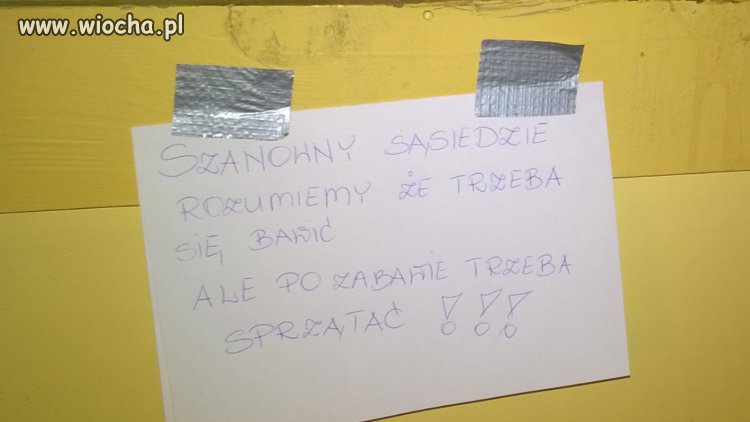 www.wiocha.pl
SZANOWNY SĄSIEDZIE
ROZUMIEMY ŻE TRZEBA
SIĘ BAWIĆ
ALE PO ZABAWIE TRZEBA
SPRZĄTAĆ !!!